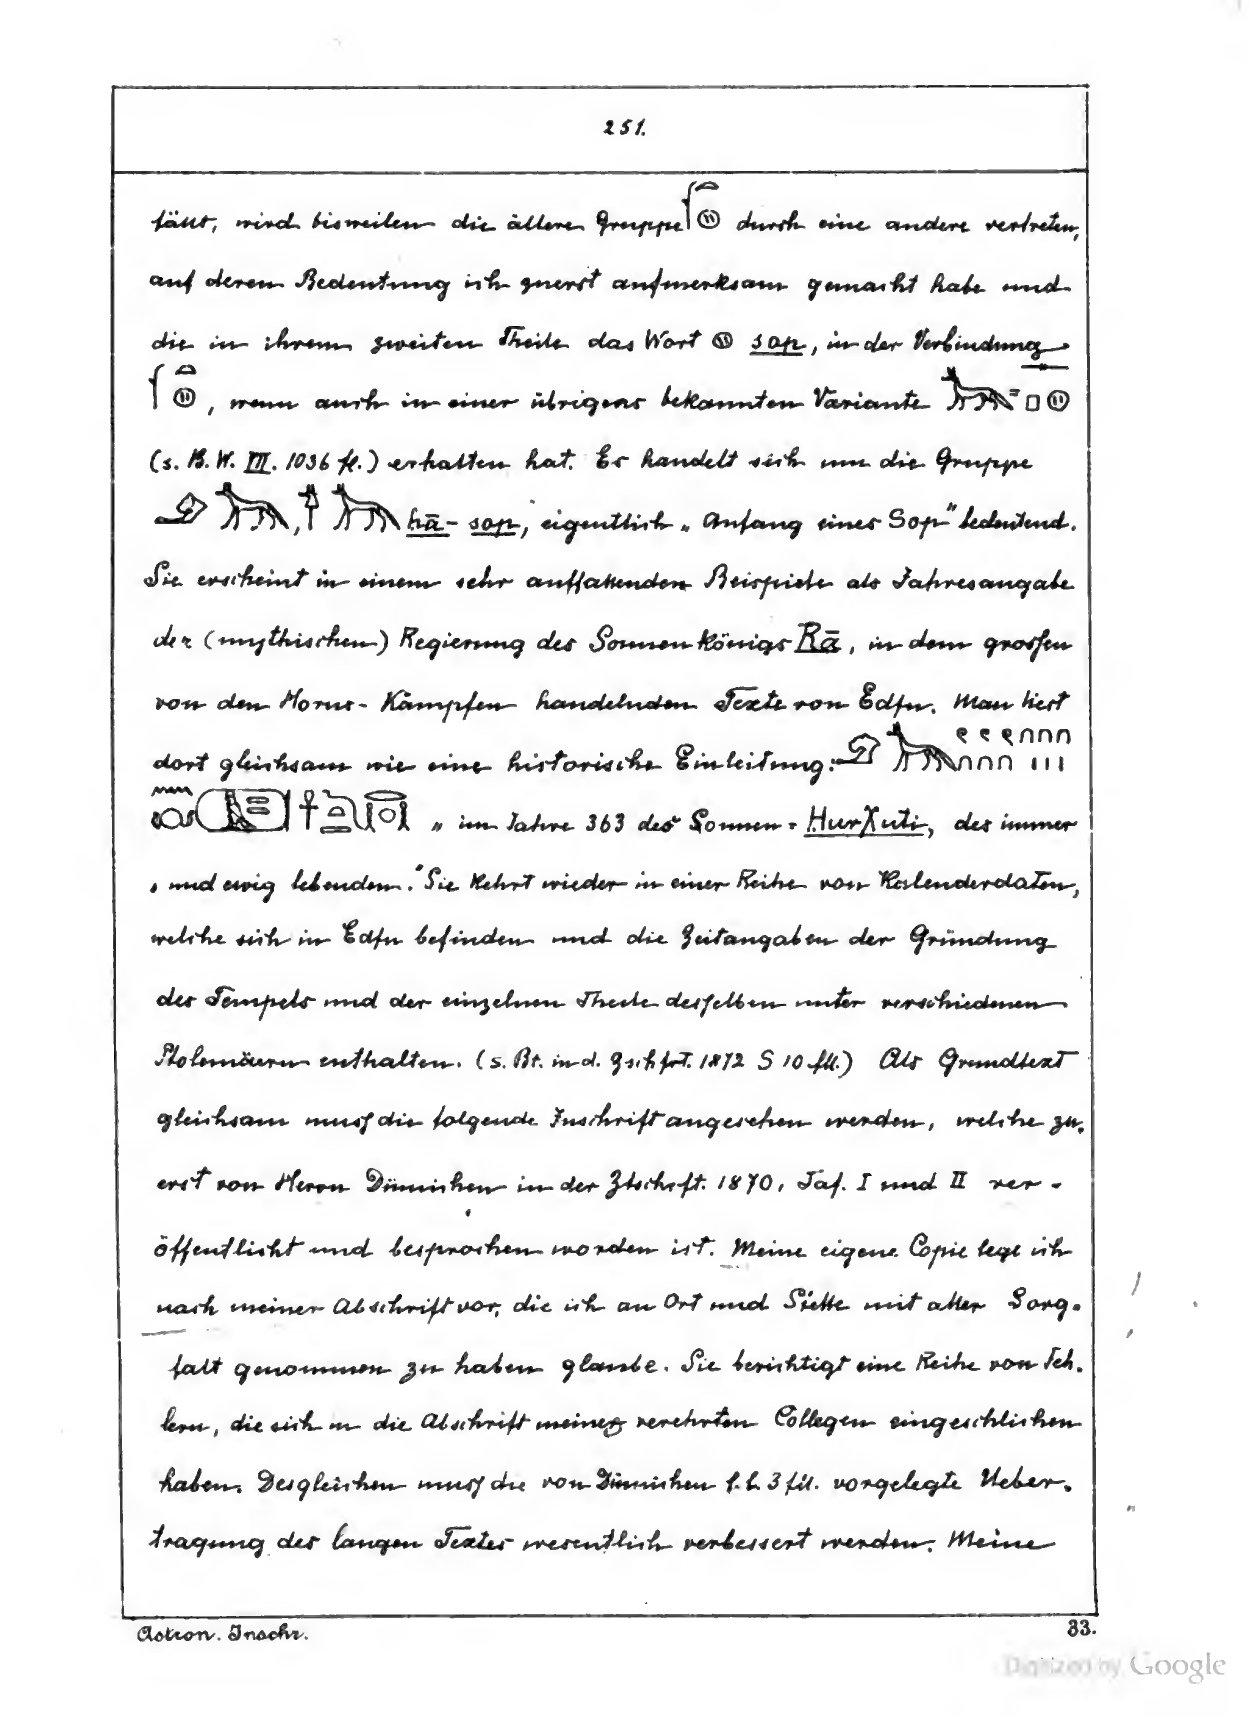 251.
fällt, wird bisweilen die ältere Gruppe 𓆳𓏏𓊗 durch eine andere vertreten,
auf deren Bedeutung ich zuerst aufmerksam gemacht habe und
die in ihrem zweiten Theile das Wort 𓊗 sop, in der Verbindung
𓆳𓏏𓊗, wenn auch in einer übrigens bekannten Variante
(s. B. W. III. 1036 fl.) erhalten hat. Es handelt sich um die Gruppe
hā-sop, eigentlich „Anfang eines Sop" bedeutend.
Sie erscheint in einem sehr auffallenden Beispiele als Jahresangabe
der (mythischen) Regierung des Sonnenkönigs Rā, in dem grossen
von den Horus-Kämpfen handelnden Texte von Edfu. Man liest
dort gleichsam wie eine historische Einleitung:
„im Jahre 363 des Sonnen-HurXuti, des immer
„und ewig lebenden." Sie kehrt wieder in einer Reihe von Kalenderdaten,
welche sich in Edfu befinden und die Zeitangaben der Gründung
des Tempels und der einzelnen Theile desselben unter verschiedenen
Ptolemäern enthalten. (s. Br. in d. Zschft. 1872 S 10 fll.) Als Grundtext
gleichsam muss die folgende Inschrift angesehen werden, welche zu-
erst von Herrn Dümichen in der Ztschrft. 1870, Taf. I und II ver-
öffentlicht und besprochen worden ist. Meine eigene Copie lege ich
nach meiner Abschrift vor, die ich an Ort und Stelle mit aller Sorg-
falt genommen zu haben glaube. Sie berichtigt eine Reihe von Feh-
lern, die sich in die Abschrift meines verehrten Collegen eingeschlichen
haben. Desgleichen muss die von Dümichen l. l. 3 fll. vorgelegte Ueber-
tragung des langen Textes wesentlich verbessert werden. Meine
Astron. Inschr. 33.
Digitized by Google